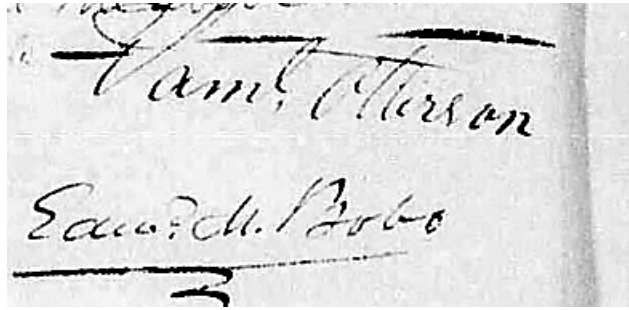 Saml. Otterson
Edwd. M. Bobo